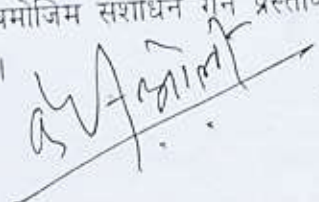 बमोजिम संशोधन गर्न प्रस्ताव
।
ओली